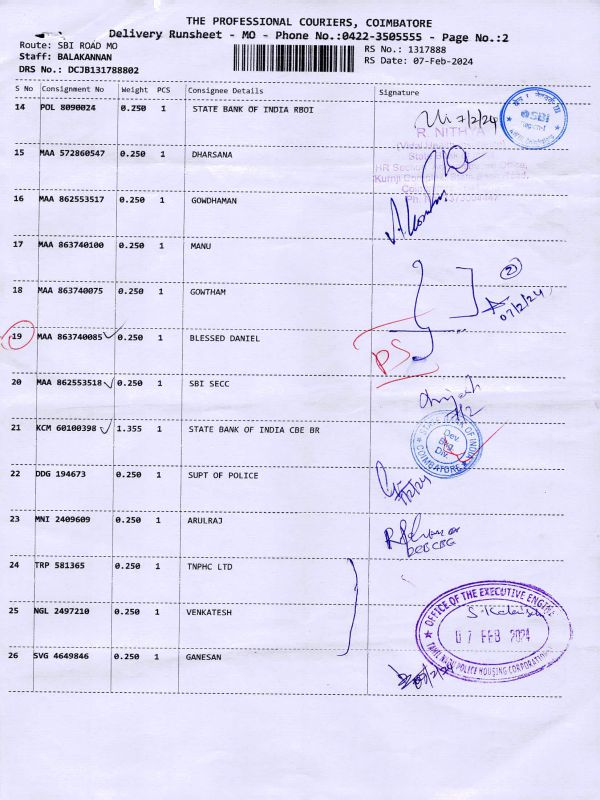 THE PROFESSIONAL COURIERS, COIMBATORE
Delivery Runsheet - MO - Phone No.:0422-3505555 - Page No.:2
Route: SBI ROAD MO
RS No.: 1317888
Staff: BALAKANNAN
RS Date: 07-Feb-2024
DRS No.: DCJB131788802
S No Consignment No Weight PCS Consignee Details Signature
14 POL 8090024 0.250 1 STATE BANK OF INDIA RBOI
7/2/24
SBI
R NITHYA
15 MAA 572860547 0.250 1 DHARSANA
16 MAA 862553517 0.250 1 GOWDHAMAN
17 MAA 863740100 0.250 1 MANU
2
18 MAA 863740075 0.250 1 GOWTHAM
07/2/24
19 MAA 863740085 0.250 1 BLESSED DANIEL
PS
20 MAA 862553518 0.250 1 SBI SECC
7/2
21 KCM 60100398 1.355 1 STATE BANK OF INDIA CBE BR
STATE BANK OF INDIA
COIMBATORE
22 DDG 194673 0.250 1 SUPT OF POLICE
7/2/24
23 MNI 2409609 0.250 1 ARULRAJ
24 TRP 581365 0.250 1 TNPHC LTD
OFFICE OF THE EXECUTIVE ENGINEER
25 NGL 2497210 0.250 1 VENKATESH
07 FEB 2024
TAMIL NADU POLICE HOUSING CORPORATION
26 SVG 4649846 0.250 1 GANESAN